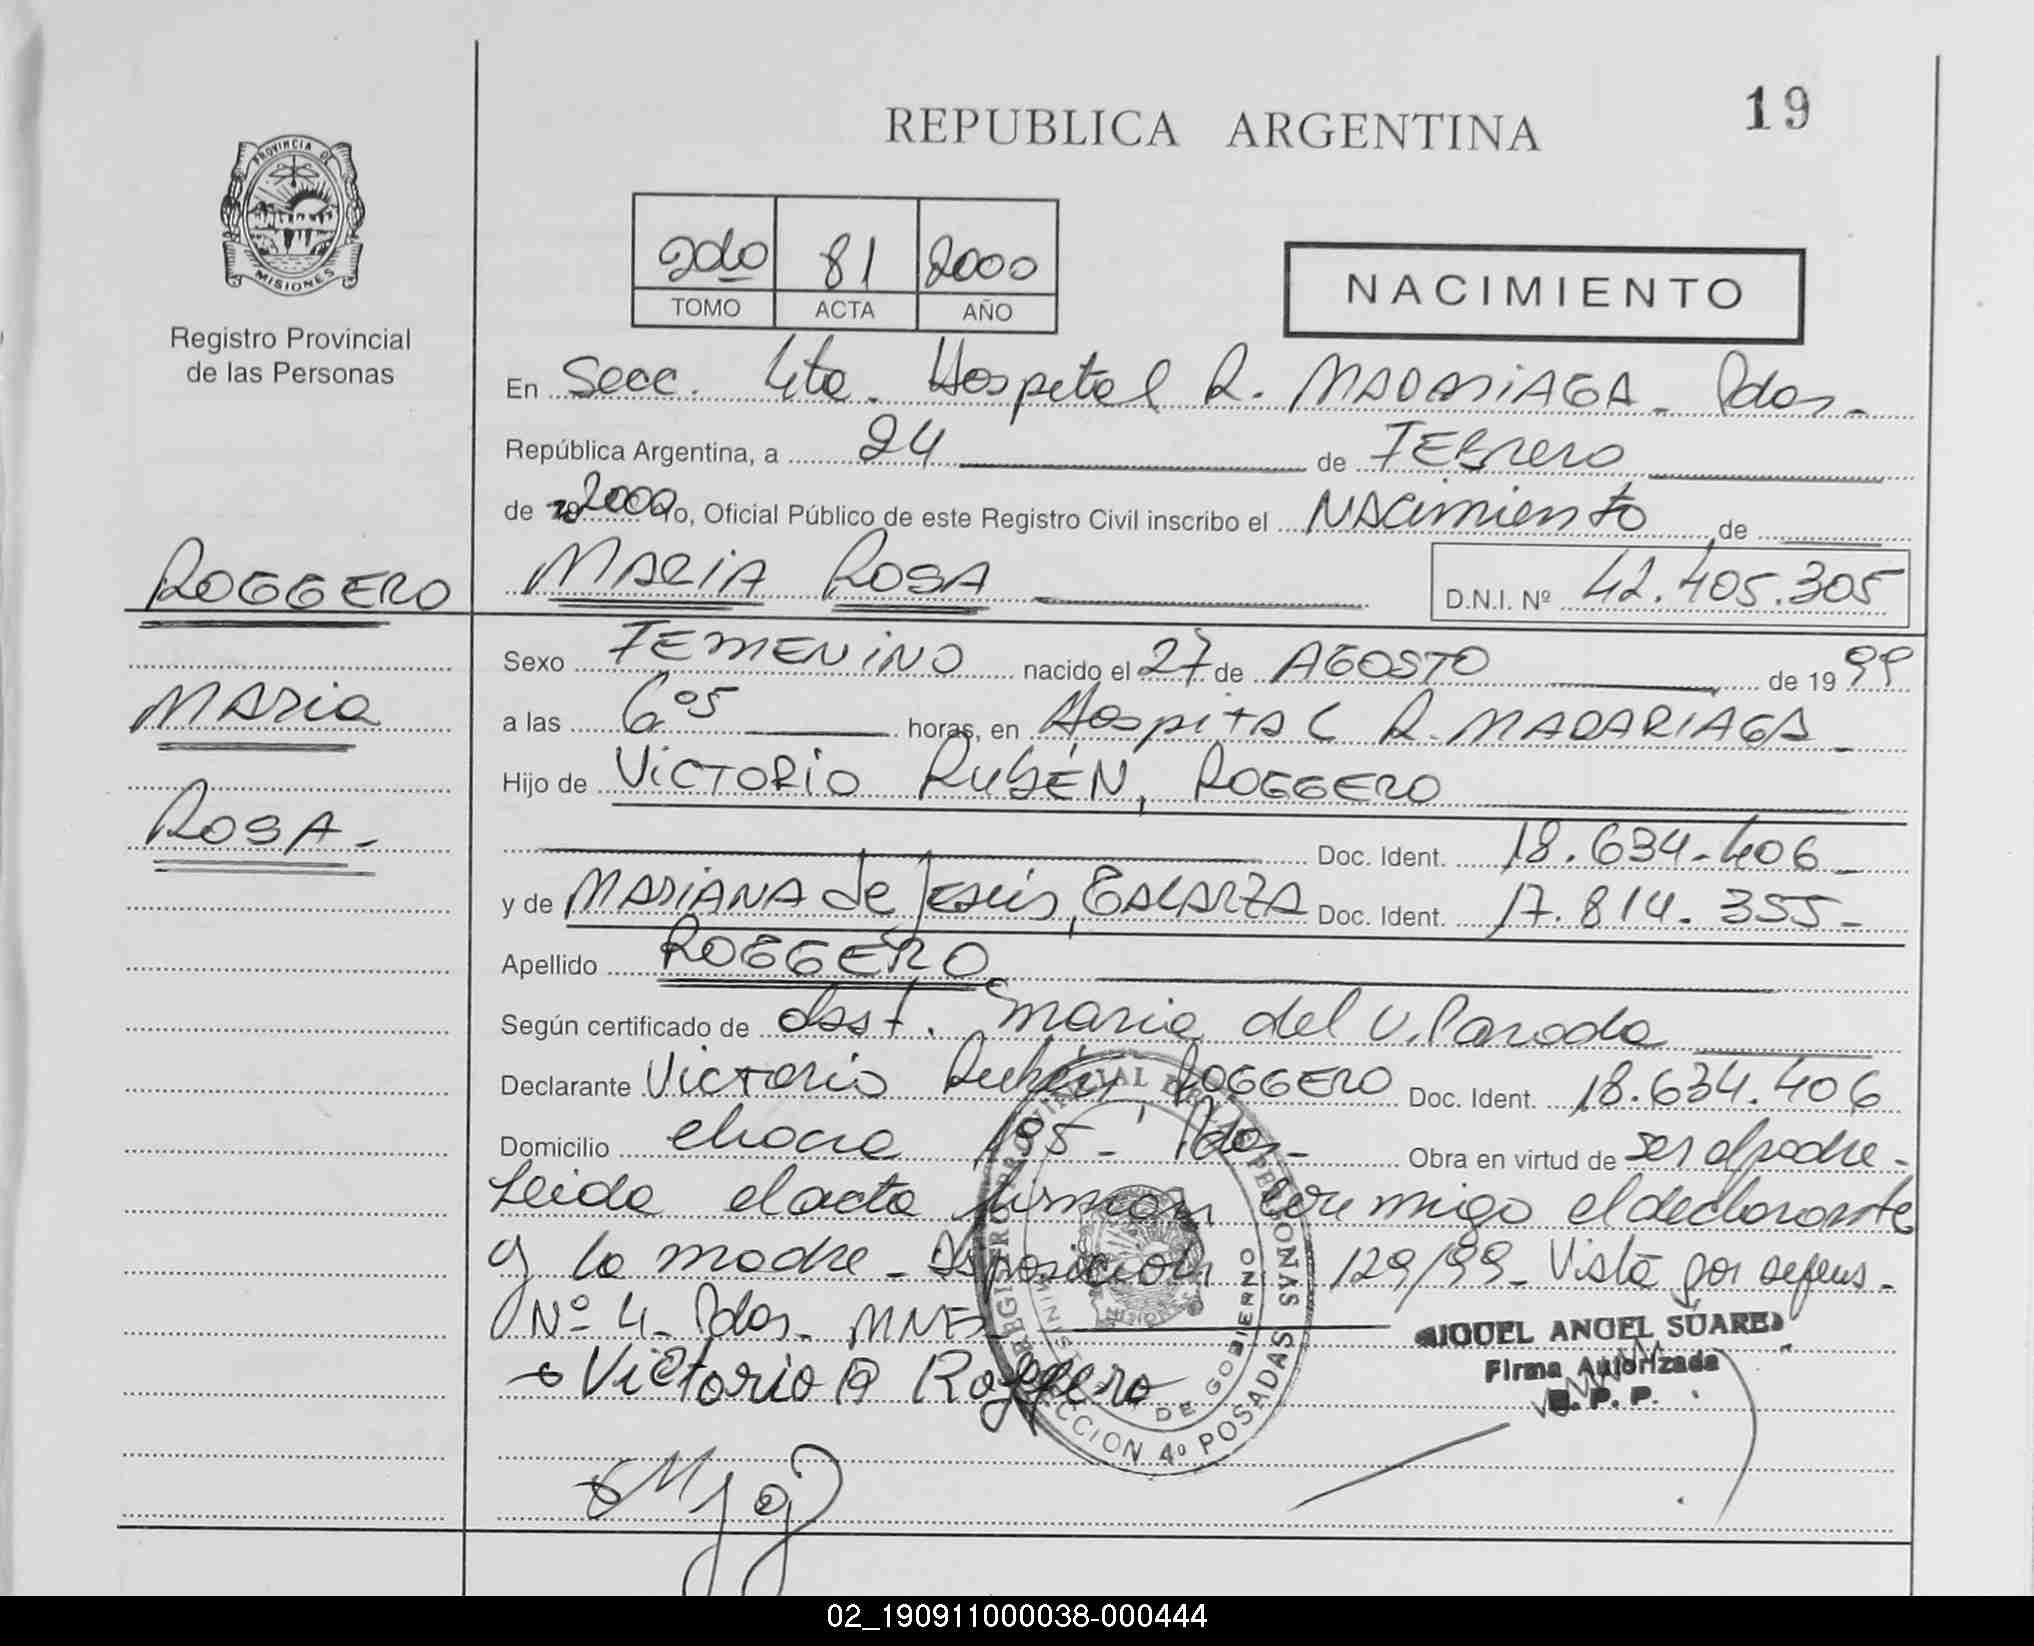 19
REPUBLICA ARGENTINA
PROVINCIA DE
MISIONES
Registro Provincial
de las Personas
2do 81 2000
TOMO ACTA AÑO
NACIMIENTO
En Secc. 4ta. Hospital R. MADARIAGA - Pdas -
República Argentina, a 24 de FEBrero
de 2000 Yo, Oficial Público de este Registro Civil inscribo el NAcimiento de
ROGGERO
MARIA ROSA D.N.I. Nº 42.405.305
Sexo FEMENINO nacido el 27 de AGOSTO de 1999
MARia
a las 6 05 horas, en HospitAl R. MADARIAGA -
Hijo de VICTORIO RUBÉN, ROGGERO
ROSA -
Doc. Ident. 18.634.406 -
y de MARIANA de Jesús, GALARZA Doc. Ident. 17.814.355 -
Apellido ROGGERO
Según certificado de Obst. Maria del V. Paroda
Declarante Victorio Rubén ROGGERO Doc. Ident. 18.634.406
Domicilio 195 - Pdas - Obra en virtud de ser el padre -
Leida el acta firman conmigo el declarante
y la madre - Disposicion 129/99 - Vista por defens -
Nº 4 - Pdas - MNES
Victorio R Roggero
REGISTRO PROVINCIAL DE LAS PERSONAS
MINIST DE GOBIERNO
SECCION 4º POSADAS
MIGUEL ANGEL SUAREZ
Firma Autorizada
R. P. P.
02_190911000038-000444